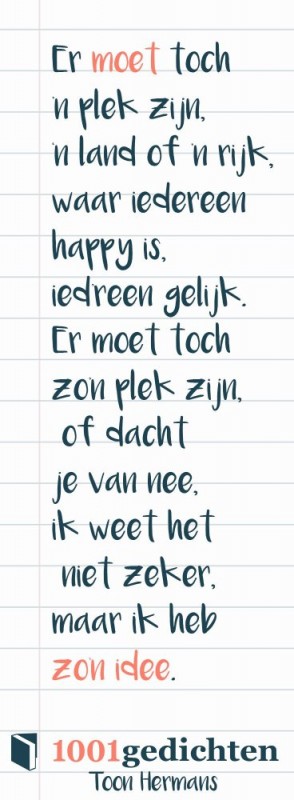 Er moet toch
'n plek zijn,
'n land of 'n rijk,
waar iedereen
happy is,
iedreen gelijk.
Er moet toch
zon plek zijn,
of dacht
je van nee,
ik weet het
niet zeker,
maar ik heb
zon idee.
1001gedichten
Toon Hermans